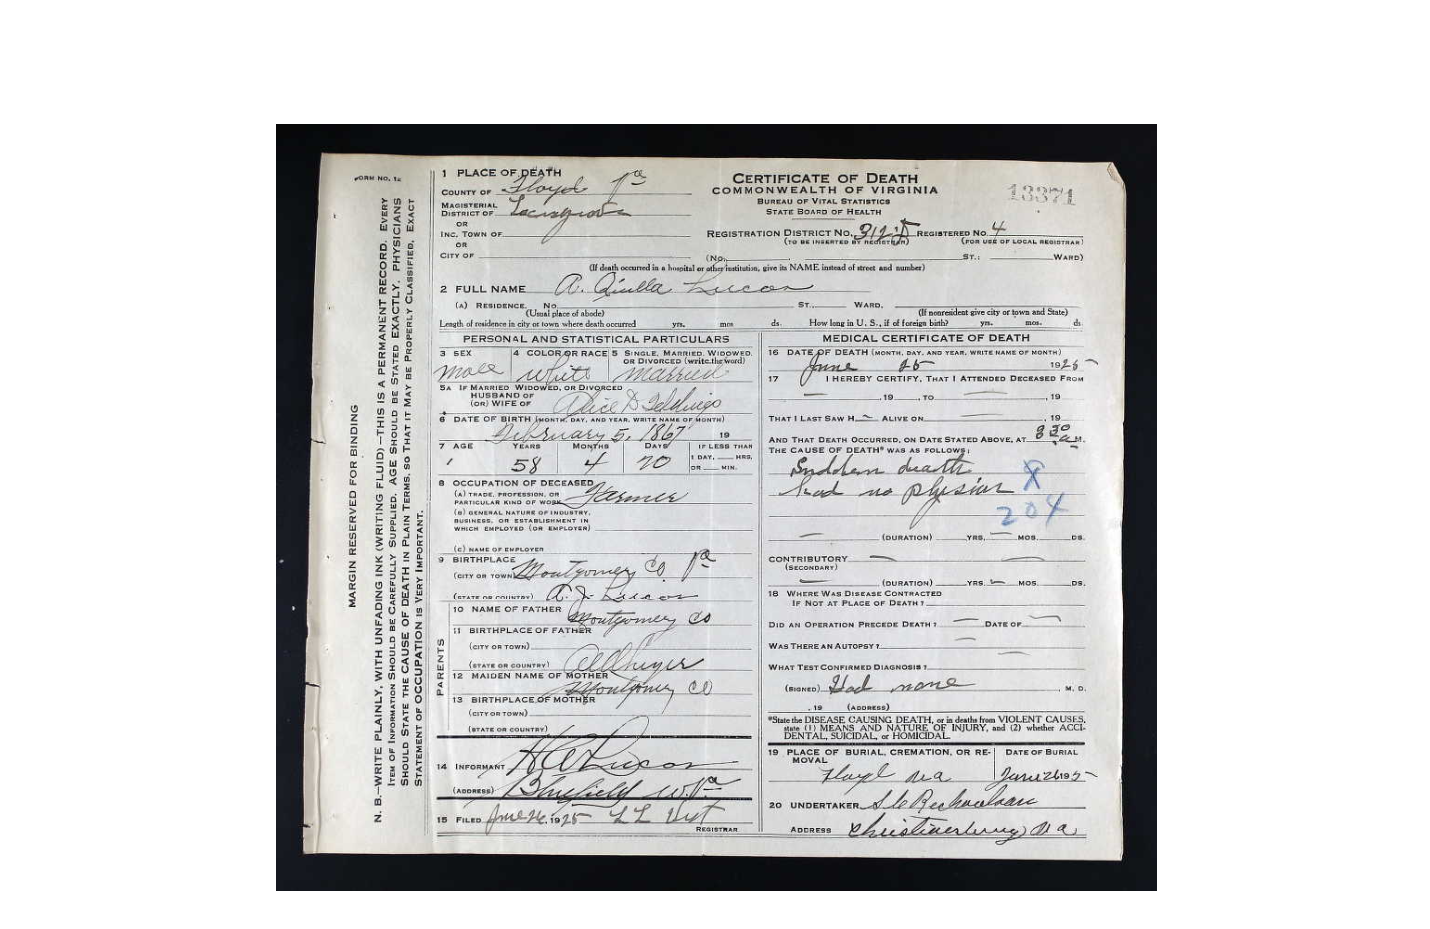 FORM NO. 1c
MARGIN RESERVED FOR BINDING
N. B.—WRITE PLAINLY, WITH UNFADING INK (WRITING FLUID)—THIS IS A PERMANENT RECORD. EVERY
ITEM OF INFORMATION SHOULD BE CAREFULLY SUPPLIED. AGE SHOULD BE STATED EXACTLY. PHYSICIANS
SHOULD STATE THE CAUSE OF DEATH IN PLAIN TERMS, SO THAT IT MAY BE PROPERLY CLASSIFIED. EXACT
STATEMENT OF OCCUPATION IS VERY IMPORTANT.
1 PLACE OF DEATH
COUNTY OF Floyd Va
MAGISTERIAL
DISTRICT OF Locust Grove
OR
INC. TOWN OF
OR
CITY OF
CERTIFICATE OF DEATH
COMMONWEALTH OF VIRGINIA
BUREAU OF VITAL STATISTICS
STATE BOARD OF HEALTH
13371
REGISTRATION DISTRICT NO. REGISTERED NO. 4
(TO BE INSERTED BY REGISTRAR) (FOR USE OF LOCAL REGISTRAR)
(No. ST.; WARD)
(If death occurred in a hospital or other institution, give its NAME instead of street and number)
2 FULL NAME A. Quilla Lucas
(A) RESIDENCE. No. ST., WARD.
(Usual place of abode) (If nonresident give city or town and State)
Length of residence in city or town where death occurred yrs. mos. ds. How long in U. S., if of foreign birth? yrs. mos. ds.
PERSONAL AND STATISTICAL PARTICULARS
3 SEX 4 COLOR OR RACE 5 SINGLE, MARRIED, WIDOWED,
OR DIVORCED (write the word)
male white married
5A IF MARRIED WIDOWED, OR DIVORCED
HUSBAND OF
(OR) WIFE OF Alice D
6 DATE OF BIRTH (MONTH, DAY, AND YEAR, WRITE NAME OF MONTH)
February 5, 1867 19
7 AGE YEARS MONTHS DAYS IF LESS THAN
1 DAY, HRS.
OR MIN.
58 4 20
8 OCCUPATION OF DECEASED
(A) TRADE, PROFESSION, OR
PARTICULAR KIND OF WORK Farmer
(B) GENERAL NATURE OF INDUSTRY,
BUSINESS, OR ESTABLISHMENT IN
WHICH EMPLOYED (OR EMPLOYER)
(C) NAME OF EMPLOYER
9 BIRTHPLACE
(CITY OR TOWN) Montgomery Co. Va
(STATE OR COUNTRY)
PARENTS
10 NAME OF FATHER A. J. Lucas
11 BIRTHPLACE OF FATHER Montgomery Co
(CITY OR TOWN)
(STATE OR COUNTRY)
12 MAIDEN NAME OF MOTHER
13 BIRTHPLACE OF MOTHER Montgomery Co
(CITY OR TOWN)
(STATE OR COUNTRY)
14 INFORMANT H A Lucas
(ADDRESS) Bluefield W. Va
15 FILED June 26, 1925 L L
REGISTRAR
MEDICAL CERTIFICATE OF DEATH
16 DATE OF DEATH (MONTH, DAY, AND YEAR, WRITE NAME OF MONTH)
June 25 1925
17 I HEREBY CERTIFY, THAT I ATTENDED DECEASED FROM
, 19 , TO , 19
THAT I LAST SAW H ALIVE ON , 19
AND THAT DEATH OCCURRED, ON DATE STATED ABOVE, AT 8 30 a M.
THE CAUSE OF DEATH* WAS AS FOLLOWS:
Sudden death
had no physian X
204
(DURATION) YRS. MOS. DS.
CONTRIBUTORY
(SECONDARY)
(DURATION) YRS. MOS. DS.
18 WHERE WAS DISEASE CONTRACTED
IF NOT AT PLACE OF DEATH?
DID AN OPERATION PRECEDE DEATH? DATE OF
WAS THERE AN AUTOPSY?
WHAT TEST CONFIRMED DIAGNOSIS?
(SIGNED) Had none , M. D.
, 19 (ADDRESS)
*State the DISEASE CAUSING DEATH, or in deaths from VIOLENT CAUSES,
state (1) MEANS AND NATURE OF INJURY, and (2) whether ACCI-
DENTAL, SUICIDAL, or HOMICIDAL.
19 PLACE OF BURIAL, CREMATION, OR RE- DATE OF BURIAL
MOVAL
Floyd Va June 26 1925
20 UNDERTAKER
ADDRESS Christiansburg Va